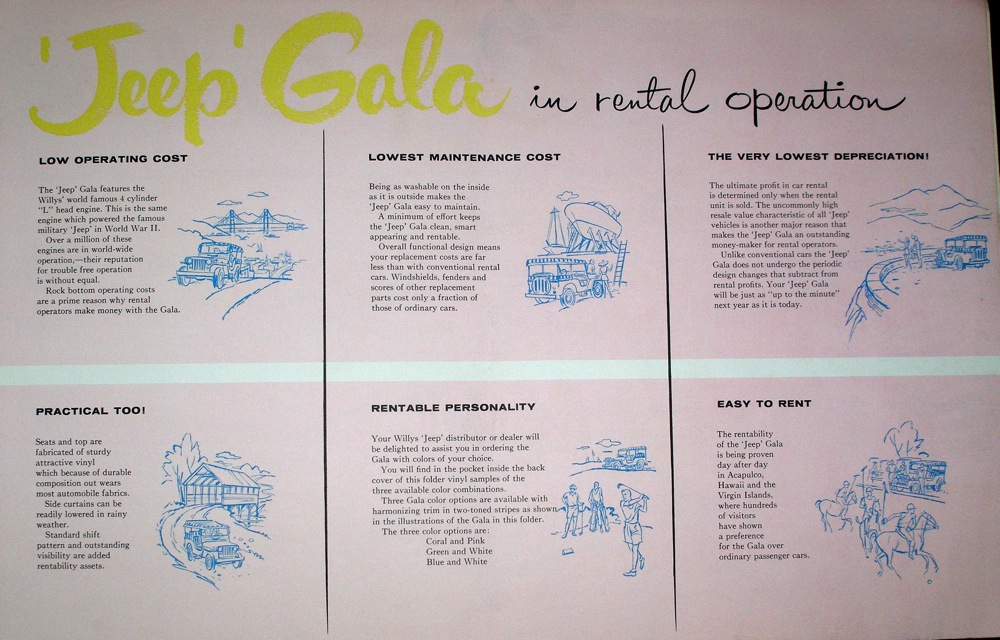 'Jeep' Gala in rental operation
LOW OPERATING COST
The 'Jeep' Gala features the
Willys' world famous 4 cylinder
"L" head engine. This is the same
engine which powered the famous
military 'Jeep' in World War II.
Over a million of these
engines are in world-wide
operation,—their reputation
for trouble free operation
is without equal.
Rock bottom operating costs
are a prime reason why rental
operators make money with the Gala.
LOWEST MAINTENANCE COST
Being as washable on the inside
as it is outside makes the
'Jeep' Gala easy to maintain.
A minimum of effort keeps
the 'Jeep' Gala clean, smart
appearing and rentable.
Overall functional design means
your replacement costs are far
less than with conventional rental
cars. Windshields, fenders and
scores of other replacement
parts cost only a fraction of
those of ordinary cars.
THE VERY LOWEST DEPRECIATION!
The ultimate profit in car rental
is determined only when the rental
unit is sold. The uncommonly high
resale value characteristic of all 'Jeep'
vehicles is another major reason that
makes the 'Jeep' Gala an outstanding
money-maker for rental operators.
Unlike conventional cars the 'Jeep'
Gala does not undergo the periodic
design changes that subtract from
rental profits. Your 'Jeep' Gala
will be just as "up to the minute"
next year as it is today.
PRACTICAL TOO!
Seats and top are
fabricated of sturdy
attractive vinyl
which because of durable
composition out wears
most automobile fabrics.
Side curtains can be
readily lowered in rainy
weather.
Standard shift
pattern and outstanding
visibility are added
rentability assets.
RENTABLE PERSONALITY
Your Willys 'Jeep' distributor or dealer will
be delighted to assist you in ordering the
Gala with colors of your choice.
You will find in the pocket inside the back
cover of this folder vinyl samples of the
three available color combinations.
Three Gala color options are available with
harmonizing trim in two-toned stripes as shown
in the illustrations of the Gala in this folder.
The three color options are:
Coral and Pink
Green and White
Blue and White
EASY TO RENT
The rentability
of the 'Jeep' Gala
is being proven
day after day
in Acapulco,
Hawaii and the
Virgin Islands,
where hundreds
of visitors
have shown
a preference
for the Gala over
ordinary passenger cars.